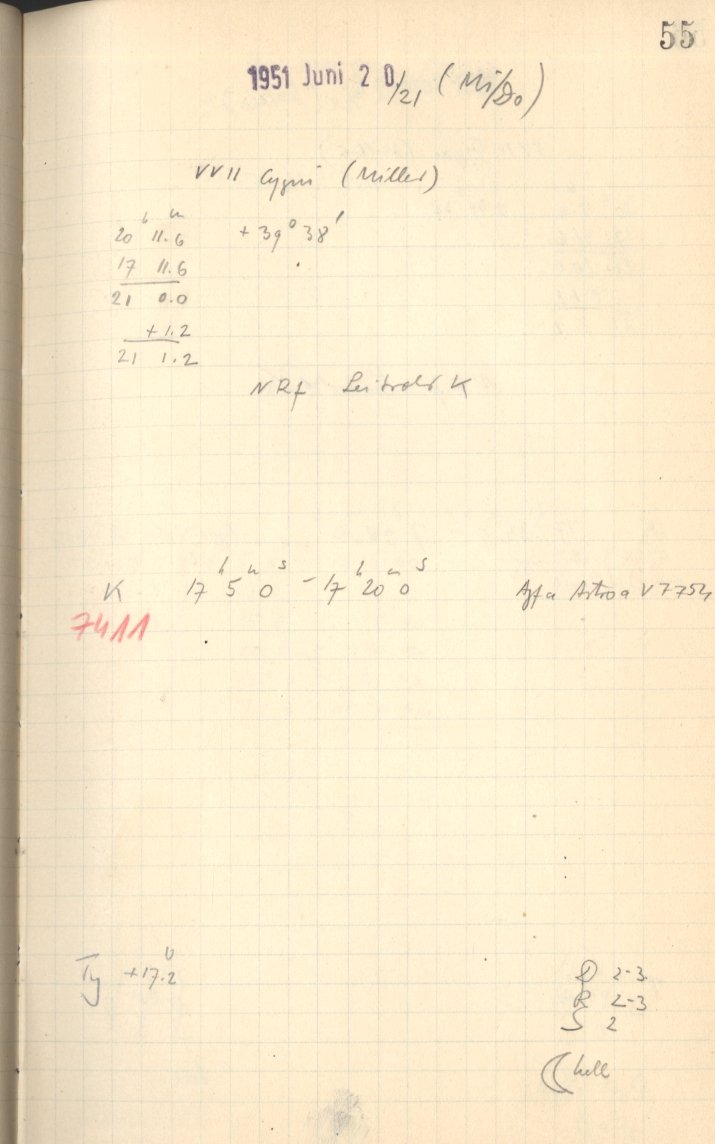 55
1951 Juni 20/21 (Mi/Do)
VV 11 Cygni (Miller)
20h 11.6m +39° 38'
17 11.6
21 0.0
+1.2
21 1.2
NRf Leitrohr K
K 17h 5m 0s - 17h 20m 0s Agfa Astro V7754
7411
+17.2°
D 2-3
R 2-3
S 2
hell